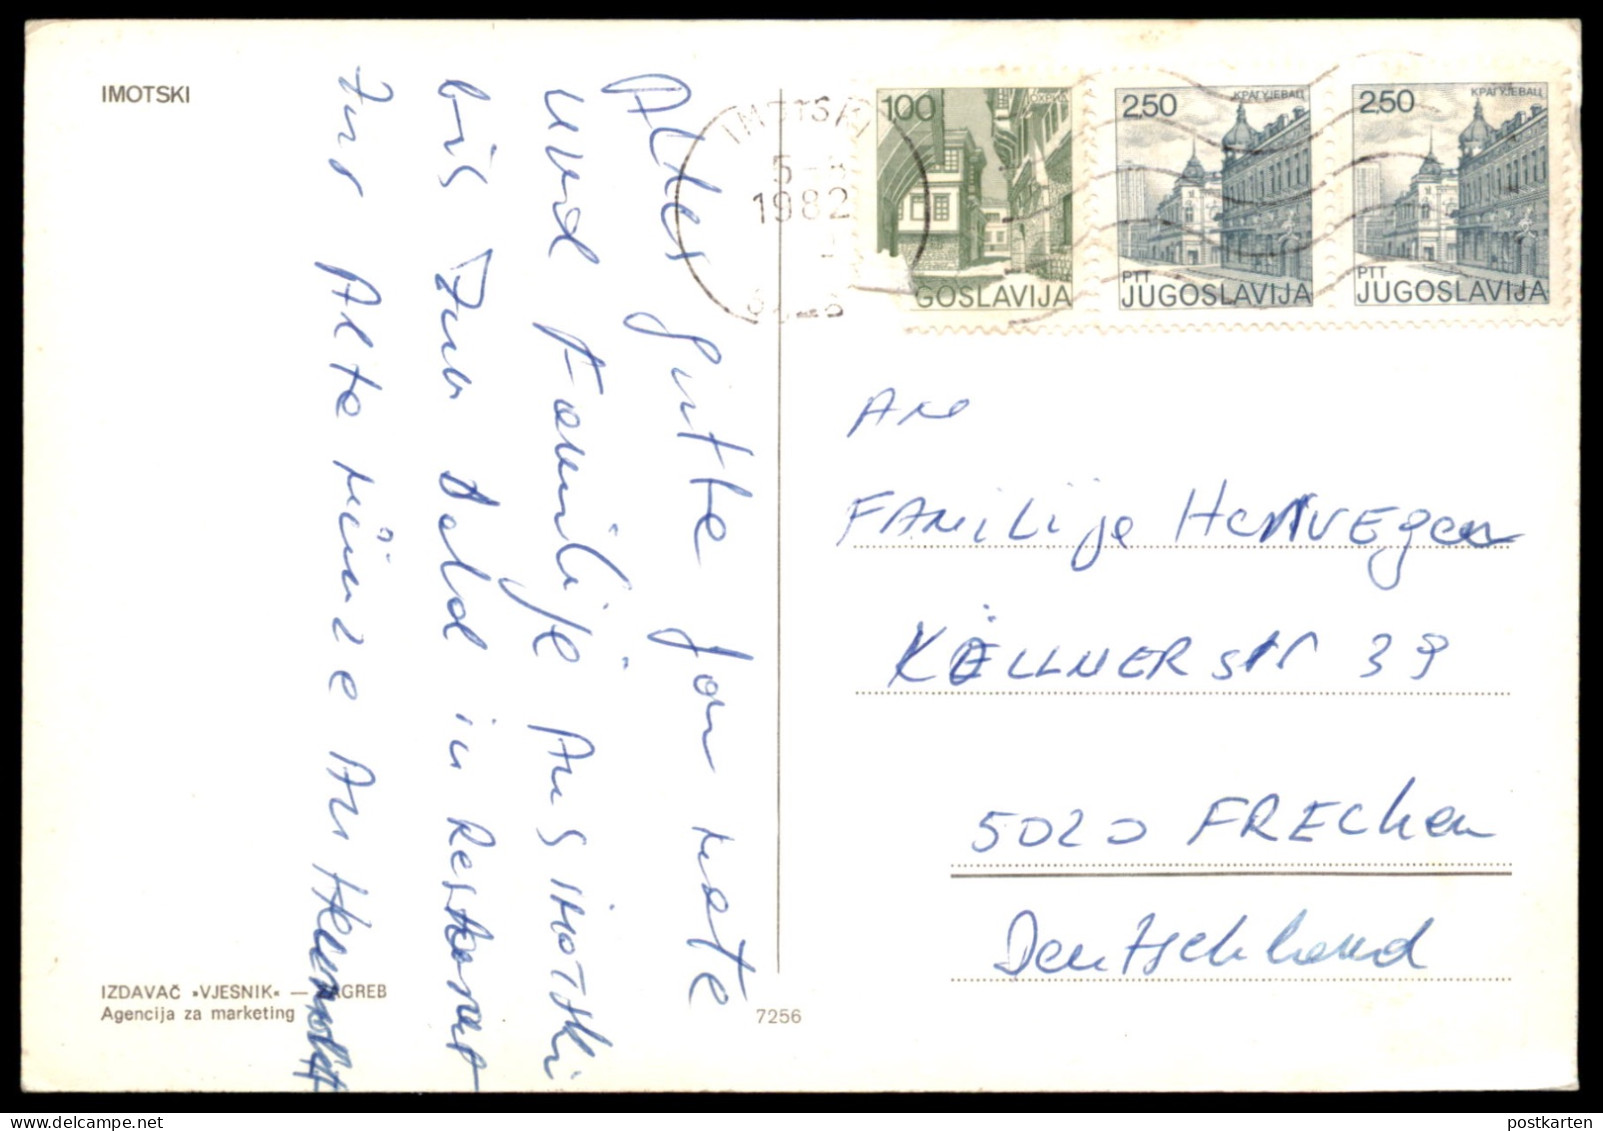 IMOTSKI
Alles gutte fon
und Familije Aus imotski
bis bald in Restorant
Alte
IZDAVAČ »VJESNIK« — ZAGREB
Agencija za marketing
7256
IMOTSKI
5-8
1982
100
ОХРИД
JUGOSLAVIJA
2,50
КРАГУЈЕВАЦ
PTT
JUGOSLAVIJA
2,50
КРАГУЈЕВАЦ
PTT
JUGOSLAVIJA
An
FAMiLije
KÖLLNER str 39
5020 FRECHen
Deutschland
postkarten